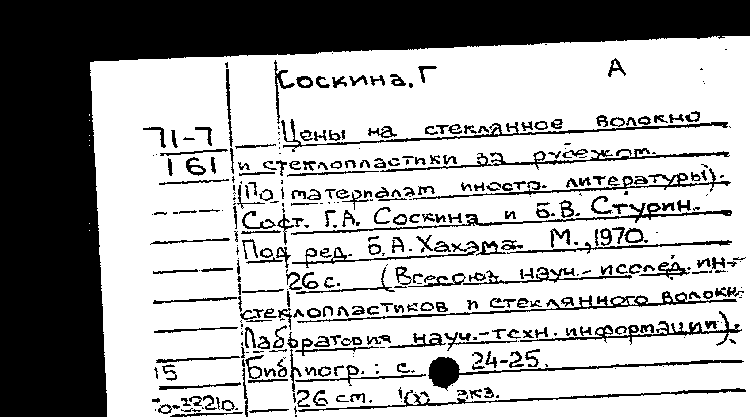 Соскина, Г А
71-7 Цены на стеклянное волокно
161 и стеклопластики за рубежом.
(По материалам иностр. литературы).
Сост. Г.А. Соскина и Б.В. Стурин.
Под ред. Б.А. Хахама. М., 1970.
26 с. (Всесоюз. науч.-исслед. ин-т
стеклопластиков и стеклянного волокна.
Лаборатория науч.-техн. информации).
15 Библиогр.: с. 24-25.
26 см. 100 экз.